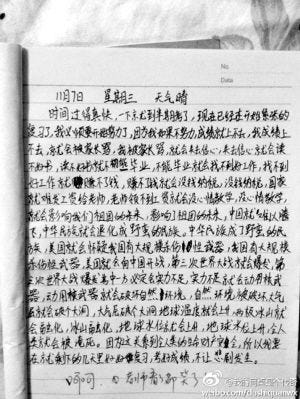 No
Date
11月7日 星期三 天气晴
时间过得真快,一下子就到半期考了,现在已经是开始紧张的
复习了,我必须要开始努力了,因为我如果不努力,成绩就上不去,我成绩上
不去,就会被家长骂,我被家长骂,就会失去信心,失去信心就会读
不好书,读不好书就不能毕业,不能毕业就会找不到好工作,找不到
好工作就赚不了钱,赚不了钱就会没钱纳税,没钱纳税,国家
就难发工资给老师,老师领不到工资就会没心情教学,没心情教学,
就会影响我们祖国的未来,影响了祖国的未来,中国就难以腾
飞,中华民族就会退化成野蛮的民族,中华民族成了野蛮的民
族,美国就会怀疑我国有大规模杀伤性武器,我国有大规模
杀伤性武器,美国就会向中国开战,第三次世界大战就会爆发,第
三次世界大战爆发其中一方必定会实力不足,实力不足就会动用核武
器,动用核武器就会破坏自然环境,自然环境被破坏大气
层就会破个大洞,大气层破个大洞地球温度就会上升,两极冰山就
会融化,冰山融化,地球水位就会上升,地球水位上升,全人
类就会被淹死。因为这关系到全人类的生命财产安全,所以我要
在剩下的几天里好好复习,考好成绩,不让悲剧发生。
呵呵,
老师看了都笑了
@我们爱讲冷笑话
weibo.com/lengxiaohua